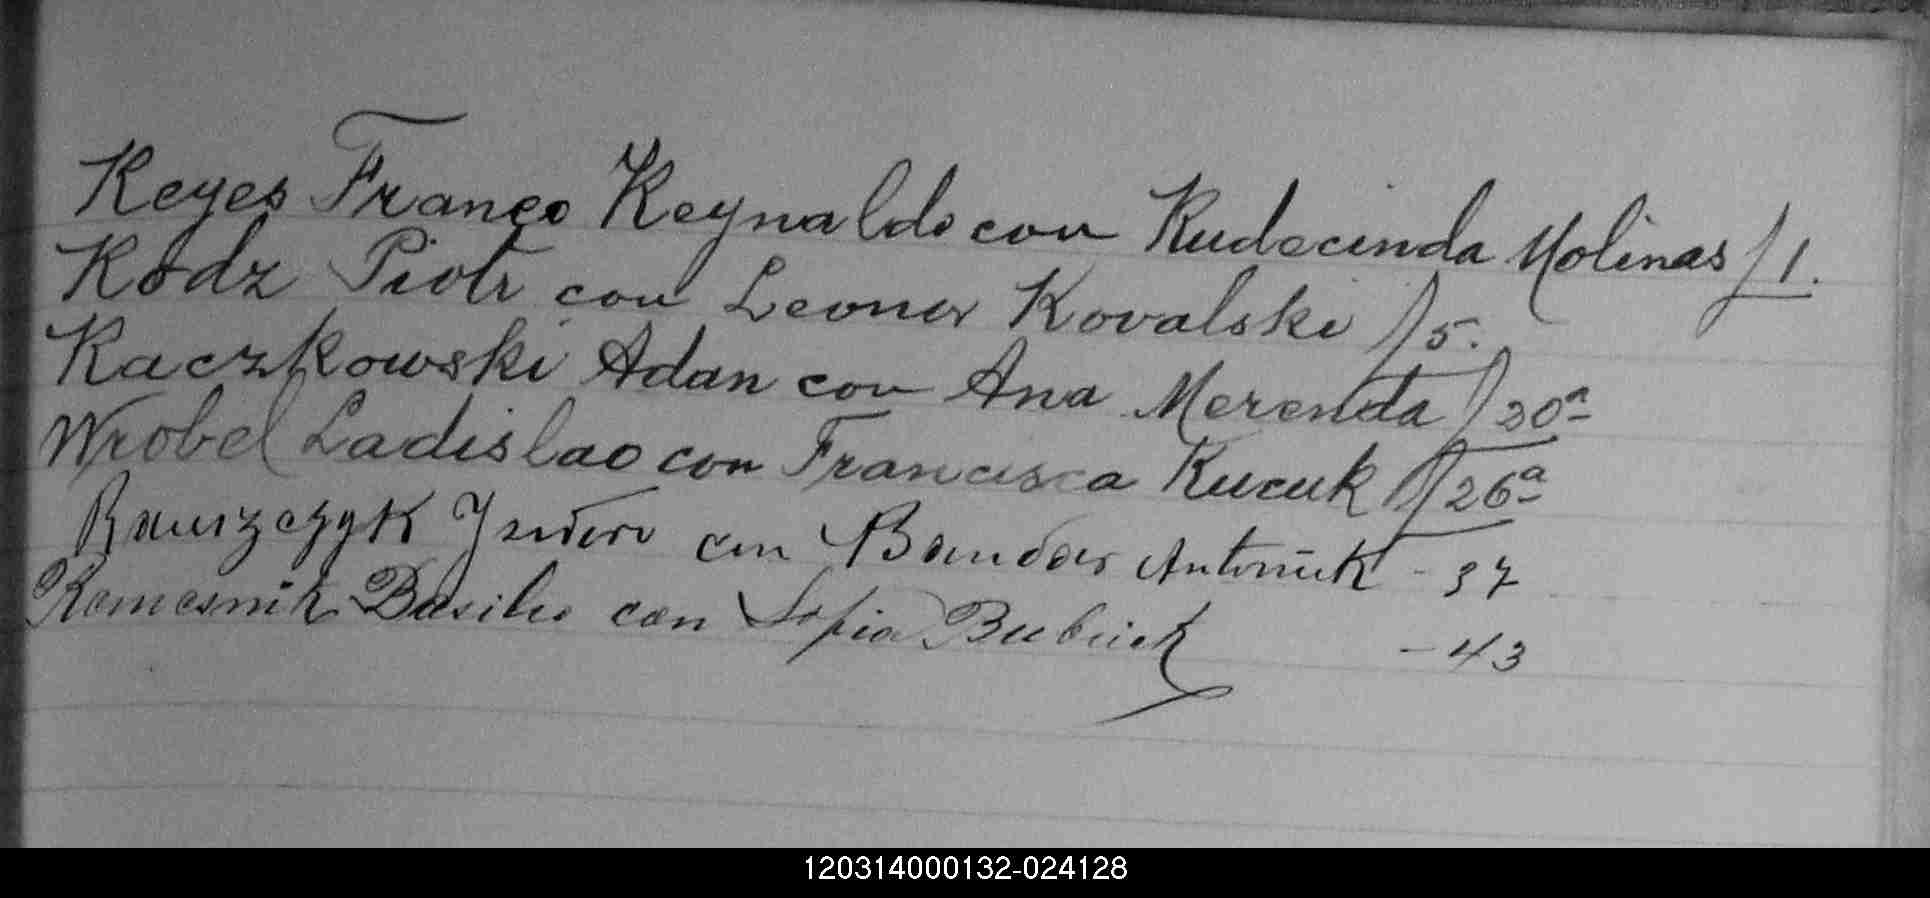 Keyes Franco Reynaldo con Rudecinda Molinas /1.
Kodz Piotr con Leonor Kovalski /5.
Kaczkowski Adan con Ana Merenda /20ª
Wrobel Ladislao con Francisca Kucuk /26ª
Isidoro con Antoniuk - 37
Basilio con Sofia - 43
120314000132-024128